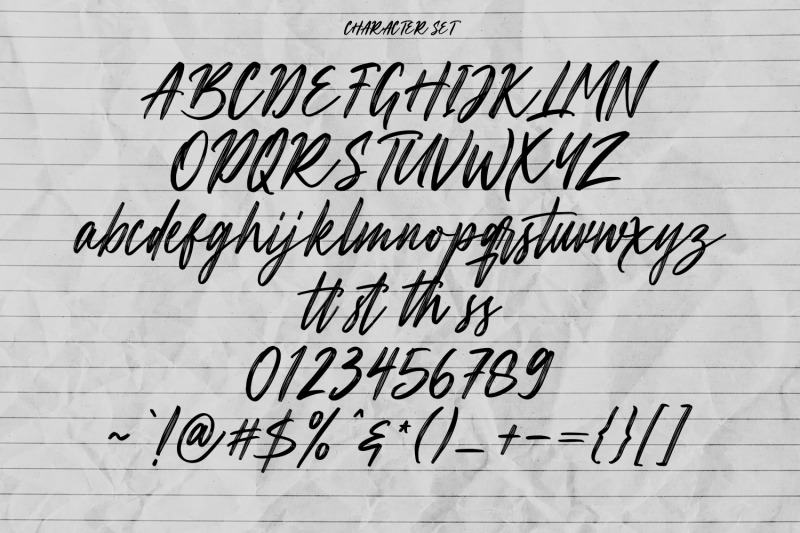 CHARACTER SET
ABCDEFGHIJKLMN
OPQRSTUVWXYZ
abcdefghijklmnopqrstuvwxyz
tt st th ss
0123456789
~`!@#$%^&*()_+-={}[]